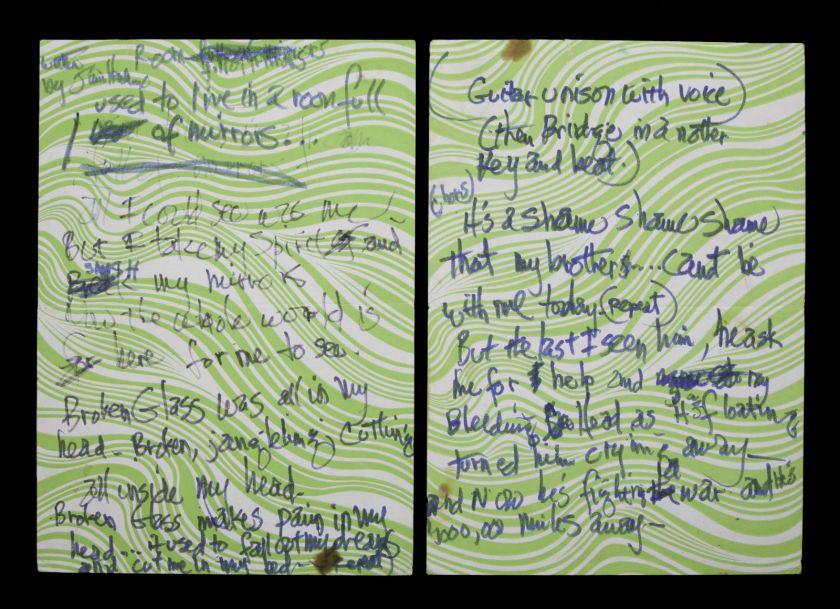 written Room full of mirrors
by Jimi Hendrix
used to live in a room full
I of mirrors...
All I could see was me
But I take my Spirit and
smash my mirrors
Now the whole world is
here for me to see.
Broken Glass was all in my
head - Broken, jangeling, Cutting
all inside my head -
Broken Glass makes pain in my
head... it used to fall of my dreams
and cut me in my bed - repeat)
(Guitar unison with voice)
(then Bridge in a nother
Key and beat.)
It's a shame shame shame
that my brothers.... Cant be
with me today (repeat)
But the last I seen him, he ask
me for help and my
Bleeding Head as it's floating
turned him crying away -
and Now he's fighting war and it's
1000,00 miles away -